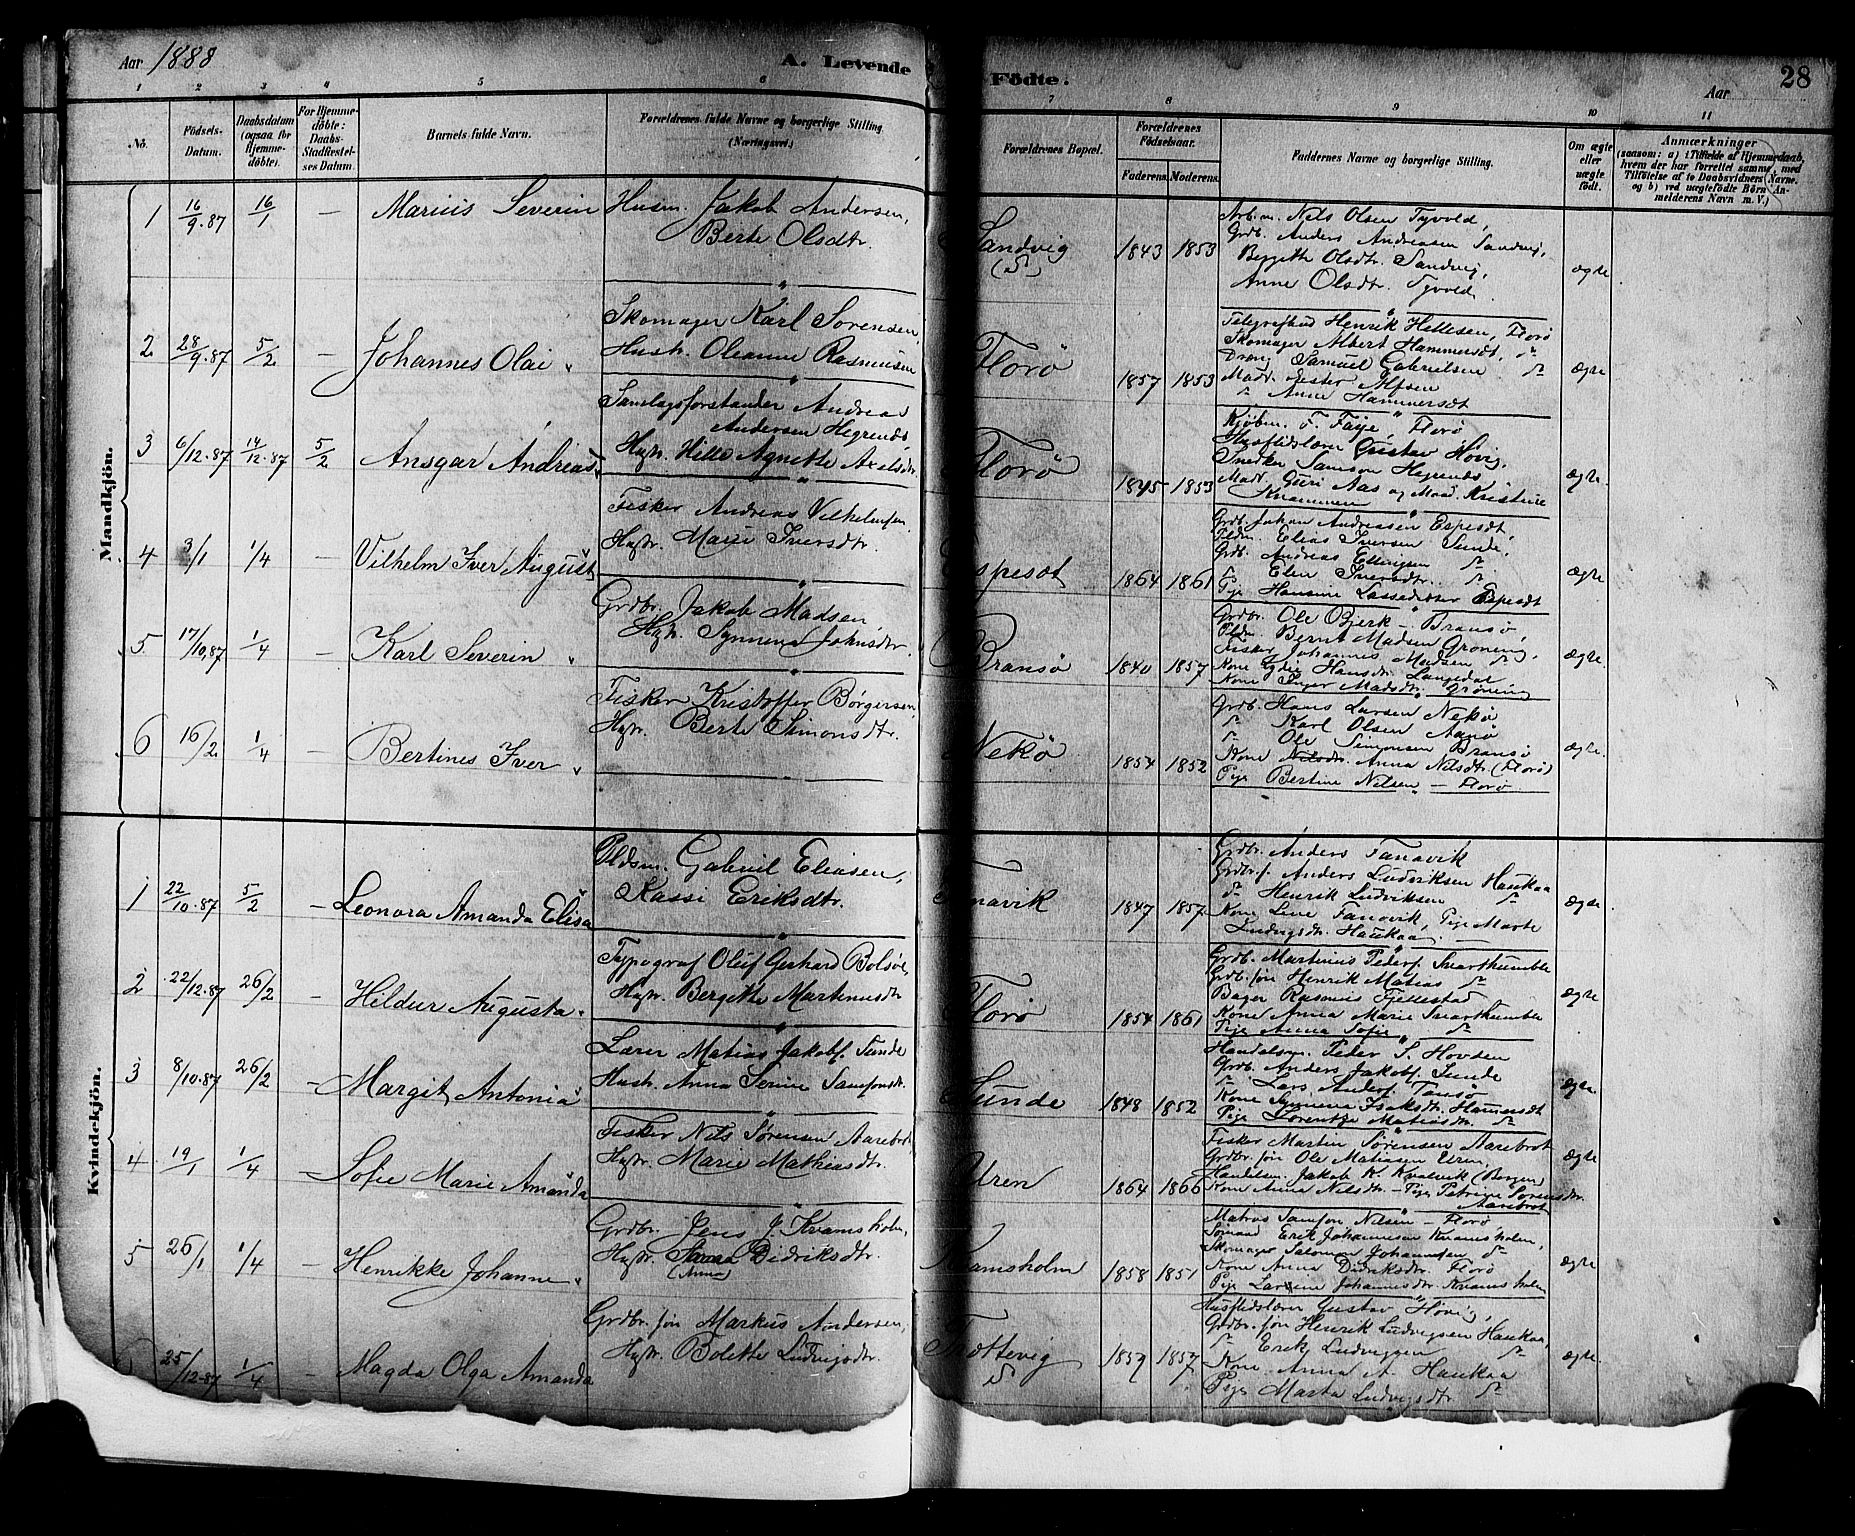 Aar 1888 A. Levende Födte. Aar 28
1 2 3 4 5 6 7 8 9 10 11
No. Födsels-Datum. Daabsdatum (ogsaa for Hjemme-döbte). For Hjemme-döbte: Daabs-Stadfæstel-ses Datum. Barnets fulde Navn. Forældrenes fulde Navne og borgerlige Stilling (Næringsvei). Forældrenes Bopæl. Forældrenes Födselsaar. Faderens. Moderens. Faddernes Navne og borgerlige Stilling. Om ægte eller uægte födt. Anmærkninger (saasom: a) i Tilfælde af Hjemmedaab, hvem der har forrettet samme, med Tilföielse af to Daabsvidners Navne, og b) ved uægtefödte Börn An-melderens Navn m. V.)
Mandkjön.
1 16/9.87 16/1 – Marius Severin Husm. Jakob Andersen,
Berte Olsdtr. Sandvig 1843 1853 ægte
Arb.m. Nils Olsen Tyvold,
Grdb. Anders Andreasen Sandvig,
Bergitte Olsdtr. Sandvig,
Anne Olsdtr. Tyvold.
2 28/9.87 5/2 – Johannes Olai Skomager Karl Sorensen,
Hustr. Oleanne Rasmusen Florö 1857 1853 Ægte
Telegrafbud Henrik Hellesen, Florö
Skomager Albert Hammersdt, do
Dreng Samuel Gabrielsen do
Madr. Ester Alfsen
do Anne Hammersdt
3 6/12.87 14/12.87 5/2 Ansgar Andreas Samlagsforstander Andreas
Andersen Hegrenæs,
Hustr. Hille Agnette Axelsdtr. Florö 1845 1853 Ægte.
Kjöbm. F. Faye, Florö
Husflidslærer Gustav Hövig,
Snedker Samson Hegrenæs,
Mad. Guri Aas og Mad. Kristine
Knammen
4 3/1 1/4 – Vilhelm Iver August Fisker Andreas Vilhelmsen
Hustr. Marie Iversdtr. Espesdt 1864 1861 Ægte
Grdb. Johan Andreasen Espesdt,
Pldm. Elias Iversen Sunde,
Grdb. Andreas Ellingsen do
do Elen Iversdtr. do
Pige Hansine Lassedatter Espesdt
5 17/10.87 1/4 – Karl Severin Grdbr. Jakob Madsen
Hustr. Synneva Johnsdtr. Bransö 1840 1857 Ægte
Grdb. Ole Bjerk – Bransö,
Pldm. Bernt Madsen Gröning,
Fisker Johannes Madsen do
Hansdtr. Langedal
Kone Inger Madsdtr. Gröning
6 16/2 1/4 – Bertines Iver Fisker Kristoffer Börgersen,
Hustr. Berte Simonsdtr. Nekö 1854 1852 Ægte
Grdb. Hans Larsen Nekö
do Karl Olsen Aanö
do Ole Simonsen Bransö
Kone Nilsdr. Anna Nilsdtr (Florö)
Pige Bertine Nilsen – Florö.
Kvindekjön.
1 22/10.87 5/2 – Leonora Amanda Elisa Pldsm. Gabriel Eliasen,
Kassi Eriksdtr. 1847 1857 Ægte
Grdbr. Anders Fanavik
Grdbrf. Anders Ludviksen Haukaa
do Henrik Ludviksen do
Kone Line Fanavik, Pige Marte
Ludvigsdtr. Haukaa
2 22/12.87 26/2 – Hildur Augusta Typograf Oluf Gerhard Bolsöe
Hustr. Bergitte Martinusdtr Florö 1854 1861 Ægte
Grdb. Martinus Peders. Svarthumble
Grdb. sön Henrik Matias do
Bager Rasmus Fjellestad
Kone Anna Marie Svarthumble
Pige Anna Sofie do
3 8/10.87 26/2 – Margit Antonia Lærer Matias Jakobs. Sunde
Hustr. Anna Serine Samsonsdt. Sunde 1848 1852 Ægte
Handelsm. Peder S. Hovden
Grdb. Anders Jakobs. Sunde
do Lars Anders. Tansö
Kone Synneva Isaksdtr. Hamersdt
Pige Lorentze Matiasdtr. do
4 19/1 1/4 – Sofie Marie Amanda Fisker Nils Sörensen Aarebrot
Hustr. Marie Mathiasdtr. Uren 1864 1866 Ægte
Fisker Martin Sörensen Aarebrot
Grdbr. sön Ole Matiasen Uren,
Handelsm. Jakob K. Kvalvik (Bergen)
Kone Anna Nilsdtr. – Pige Petrine Sörensdtr.
Aarebrot
5 26/1 1/4 – Henrikke Johanne Grdbr. Jens J. Kvamsholm,
Hustr. Didriksdtr.
(Anna) Kvamsholm 1858 1851 Ægte
Matros Samson Nilsen – Florö,
Sömand Erik Johannesen Kvamsholm,
Skomager Salomon Johannesen do
Kone Anna Didriksdtr. Florö
Pige Larsine Johannesdtr. Kvamsholm
25/12.87 1/4 – Magda Olga Amanda Grdbr. sön Markus Andersen,
Hustr. Bolette Ludvigsdtr. 1859 1857 Ægte.
Husflidslærer Gustav Hövig,
Grdbr. sön Henrik Ludvigsen Haukaa,
do Erik Ludvigsen do
Kone Anna A. Haukaa
Pige Marta Ludvigsdtr. do